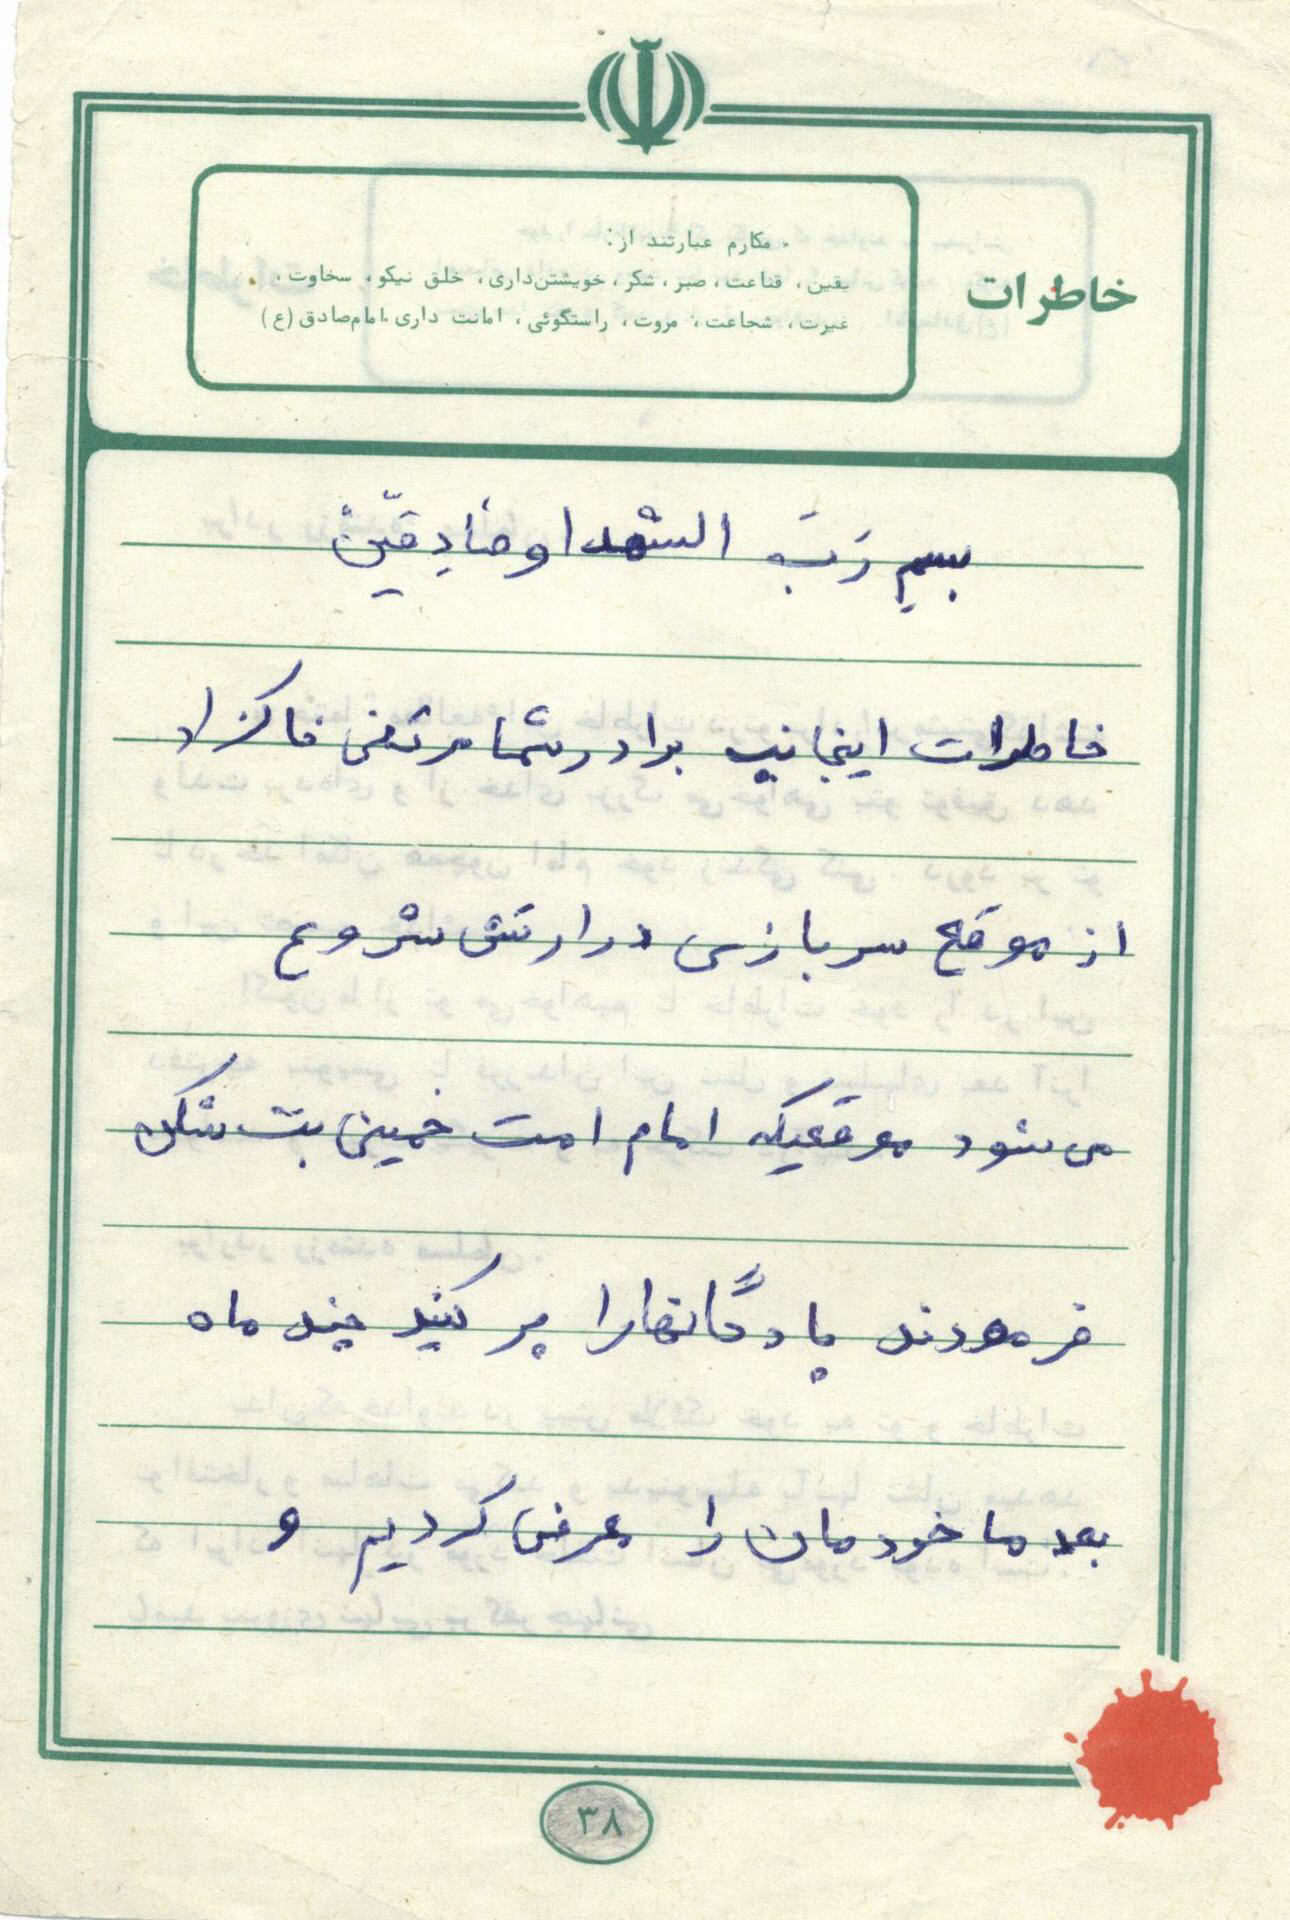 مکارم عبارتند از:
یقین، قناعت، صبر، شکر، خویشتن‌داری، خلق نیکو، سخاوت،
غیرت، شجاعت، مروت، راستگوئی، امانت داری.امام‌صادق (ع)
خاطرات
بسمِ رَبِّ الشهدا و صادِقیّنْ
خاطرات اینجانب برادر شما مرتضی خاکزاد
از موقع سربازی در ارتش شروع
می شود موقعیکه امام امت خمینی بت شکن
فرمودند پادگانها را پر کنید چند ماه
بعد ما خودمان را معرفی کردیم و
۳۸